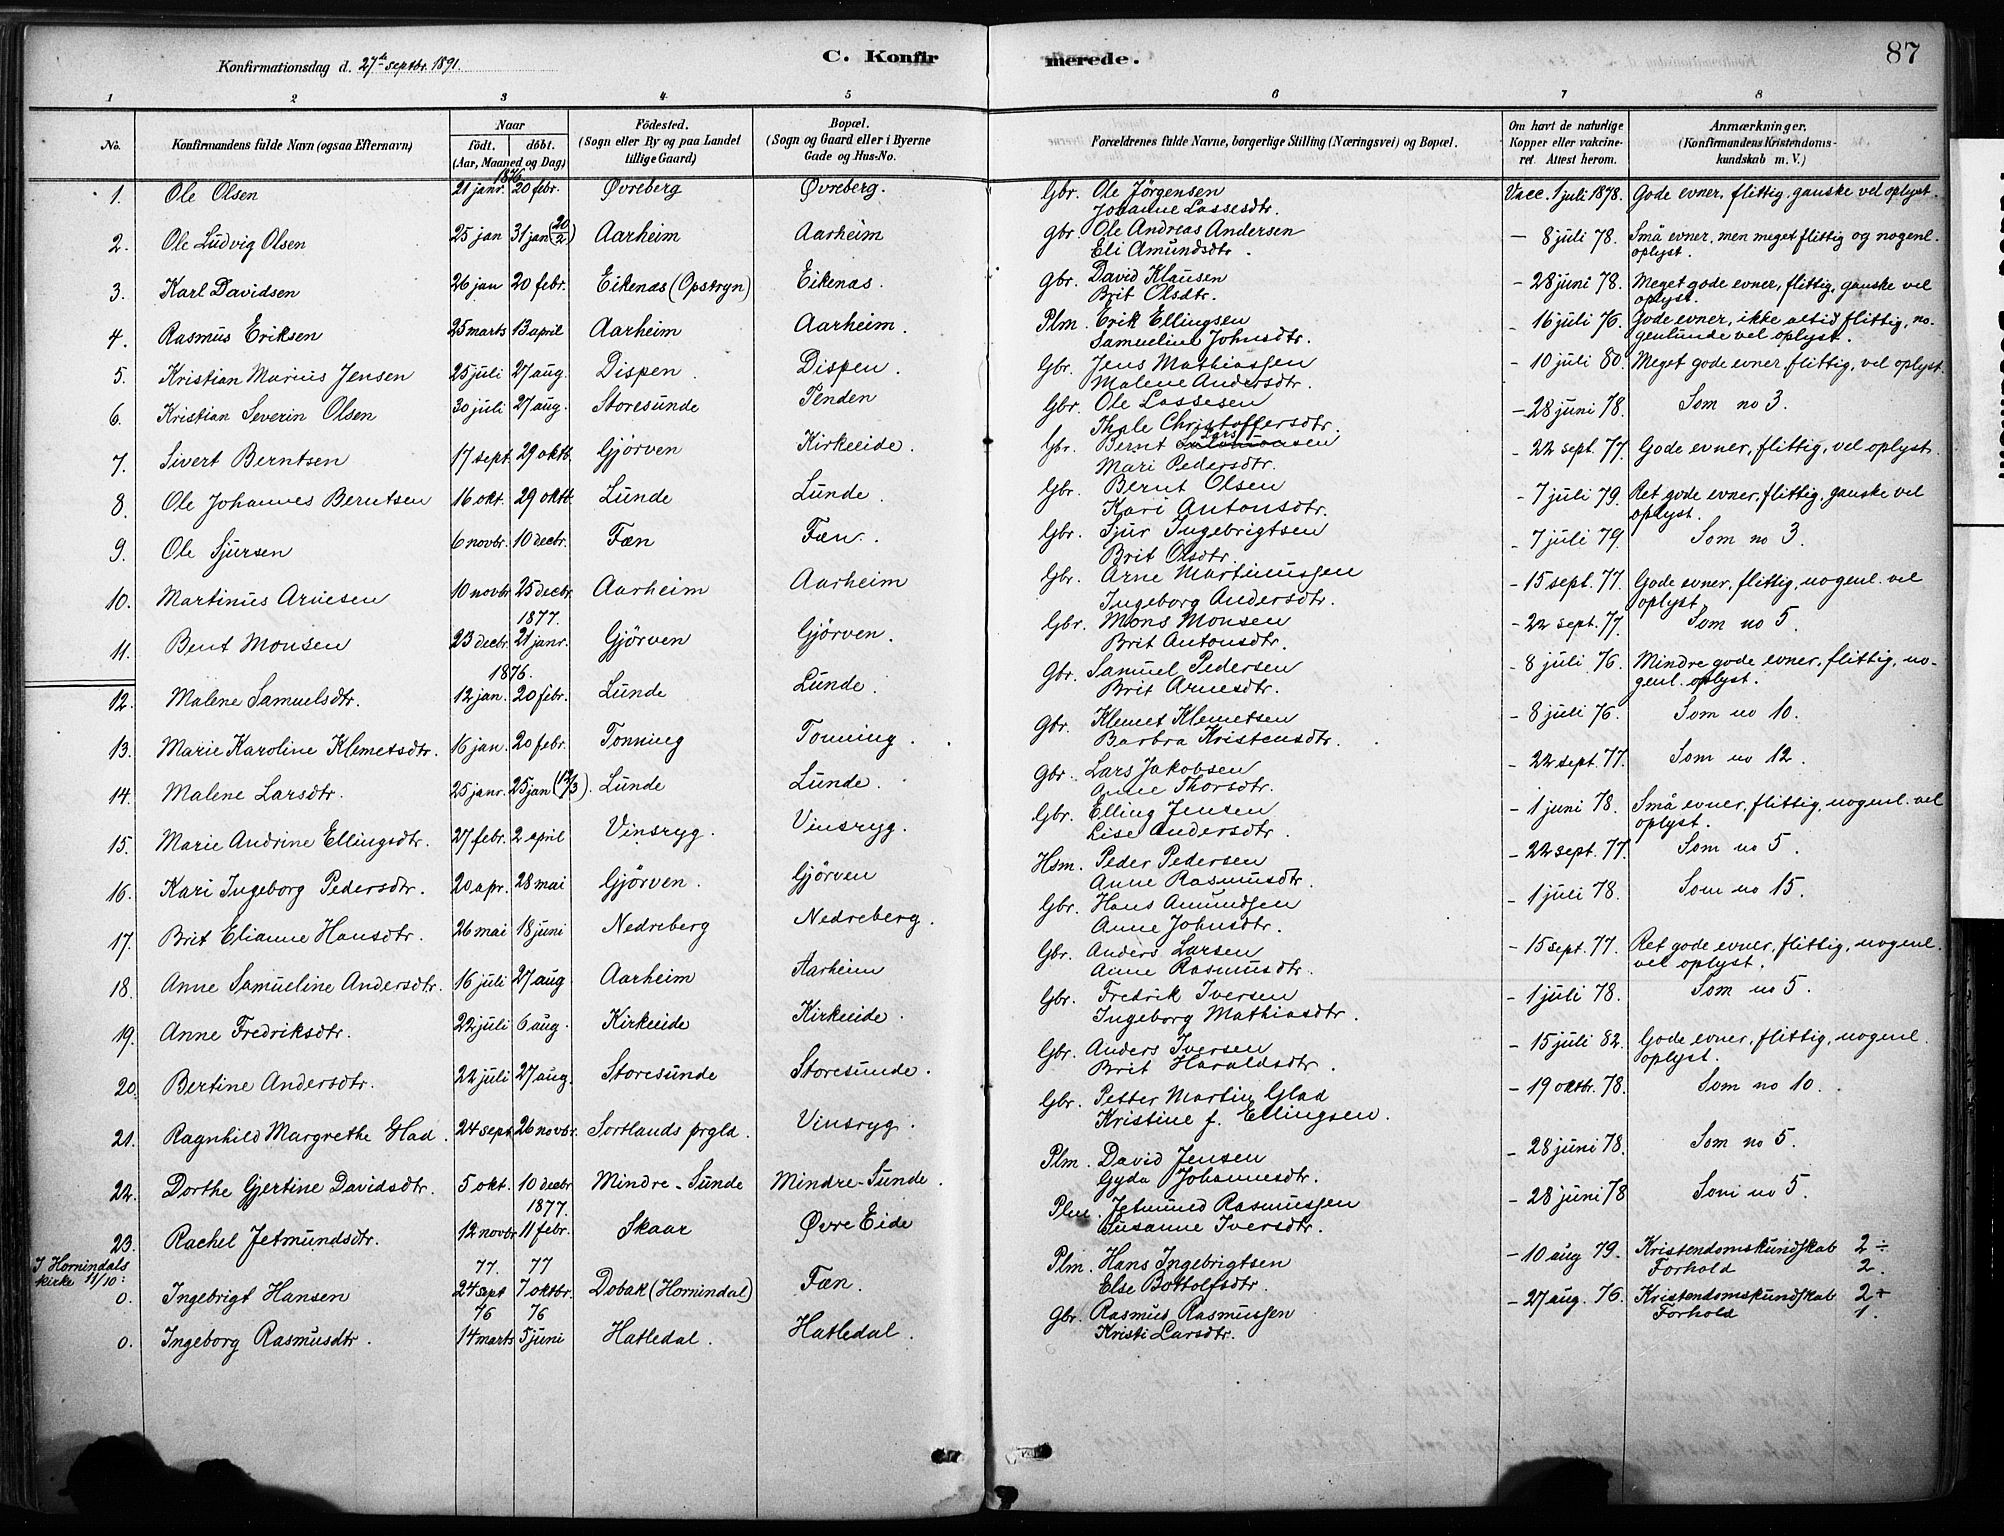 Konfirmationsdag d. 27de septbr. 1891.
C. Konfirmerede.
87
1 2 3 4 5 6 7 8
No.
Konfirmandens fulde Navn (ogsaa Efternavn)
Naar
født. døbt.
(Aar, Maaned og Dag)
Fødested.
(Sogn eller By og paa Landet tillige Gaard)
Bopæl.
(Sogn og Gaard eller i Byerne Gade og Hus-No.
Forældrenes fulde Navne, borgerlige Stilling (Næringsvei) og Bopæl.
Om havt de naturlige Kopper eller vakcineret. Attest herom.
Anmærkninger.
(Konfirmandens Kristendomskundskab m. V.)
1876
1. Ole Olsen 21 janr. 20 febr. Øvreberg Øvreberg. Gbr. Ole Jörgensen Johanne Lassesdtr. Vacc. 1 juli 1878. Gode evner, flittig, ganske vel oplyst.
2. Ole Ludvig Olsen 25 jan 31 jan (20/2) Aarheim Aarheim Gbr. Ole Andreas Andersen Eli Amundsdtr. - 8 juli 78. Små evner, men meget flittig og nogenl. oplyst.
3. Karl Davidsen 26 jan 20 febr. Eikenæs (Opstryn) Eikenæs. Gbr. David Klausen Brit Olsdtr. - 28 juni 78. Meget gode evner, flittig, ganske vel oplyst.
4. Rasmus Eriksen 25 marts 13 april Aarheim Aarheim. Plm. Erik Ellingsen Samueline Johnsdtr. - 16 juli 76. Gode evner, ikke altid flittig, nogenlunde vel oplyst.
5. Kristian Marius Jensen 25 juli 27 aug. Dispen. Dispen. Gbr. Jens Mathiassen Malene Andersdtr. - 10 juli 80. Meget gode evner, flittig, vel oplyst.
6. Kristian Severin Olsen 30 juli 27 aug. Storesunde Tenden Gbr. Ole Lassesen Thale Christoffersdtr. - 28 juni 78. Som no 3.
7. Sivert Berntsen 17 sept. 29 oktb. Gjörven Kirkeeide. Gbr. Bernt Larssen Mari Pedersdtr. - 22 sept. 77. Gode evner, flittig, vel oplyst.
8. Ole Johannes Berntsen 16 okt. 29 oktb. Lunde Lunde. Gbr. Bernt Olsen Kari Antonsdtr. - 7 juli 79. Ret gode evner, flittig, ganske vel oplyst.
9. Ole Sjursen 6 novbr. 10 decbr. Fæn Fæn. Gbr. Sjur Ingebrigtsen Brit Olsdtr. - 7 juli 79. Som no 3.
10. Martinus Arnesen 10 novbr 25 decbr. Aarheim Aarheim Gbr. Arne Martinussen Ingeborg Andersdtr. - 15 sept. 77. Gode evner, flittig, nogenl. vel oplyst.
1877.
11. Bent Monsen 23 decbr. 21 janr. Gjörven Gjörven. Gbr. Mons Monsen Brit Antonsdtr. - 22 sept. 77. Som no 5.
1876.
12. Malene Samuelsdtr. 12 jan. 20 febr. Lunde Lunde. Gbr. Samuel Pedersen Brit Arnesdtr. - 8 juli 76. Mindre gode evner, flittig, nogenl. oplyst.
13. Marie Karoline Klemetsdtr. 16 jan. 20 febr. Tonning Tonning. Gbr. Klemet Klemetsen Barbra Kristensdtr. - 8 juli 76. Som no 10.
14. Malene Larsdtr. 25 janr. 25 jan (12/3). Lunde Lunde. Gbr. Lars Jakobsen Anne Thorsdtr. - 22 sept. 77. Som no 12.
15. Marie Andrine Ellingsdtr. 27 febr. 2 april Vinsryg. Vinsryg. Gbr. Elling Jensen Lise Andersdtr. - 1 juni 78. Små evner, flittig, nogenl. vel oplyst.
16. Kari Ingeborg Pedersdtr. 20 apr. 28 mai Gjörven. Gjörven Hsm. Peder Pedersen Anne Rasmusdtr. - 22 sept. 77. Som no 5.
17. Brit Elianne Hansdtr. 26 mai 18 juni Nedreberg Nedreberg. Gbr. Hans Amundsen Anne Johnsdtr. - 1 juli 78. Som no 15.
18. Anne Samueline Andersdtr. 16 juli 27 aug Aarheim Aarheim Gbr. Anders Larsen Anne Rasmusdtr. - 15 sept. 77. Ret gode evner, flittig, nogenl. vel oplyst.
19. Anne Fredriksdtr. 22 juli 6 aug. Kirkeeide Kirkeeide. Gbr. Fredrik Iversen Ingeborg Mathiasdtr. - 1 juli 78. Som no 5.
20. Bertine Andersdtr. 22 juli 27 aug. Storesunde Storesunde. Gbr. Anders Iversen Brit Haraldsdtr. - 15 juli 82. Gode evner, flittig, nogenl. oplyst.
21. Ragnhild Margrethe Glad. 24 sept. 26 novbr. Sortlands prgld. Vinsryg. Gbr. Petter Martin Glad Kristine f. Ellingsen. - 19 oktbr. 78. Som no 10.
22. Dorthe Gjertine Davidsdtr. 5 okt. 10 decbr Mindre-Sunde Mindre-Sunde. Plm. David Jensen Gyda Johannesdtr. - 28 juni 78. Som no 5.
1877.
23. Rachel Jetmundsdtr. 12 novbr 11 febr. Skaar Øvre Eide Plm. Jetmund Rasmussen Susanne Iversdtr. - 28 juni 78 Som no 5.
I Hornindals kirke 11/10:
77. 77
0. Ingebrigt Hansen 24 sept 7 oktbr. Dobak (Hornindal) Fæn. Plm. Hans Ingebrigtsen Else Bottolfsdtr. - 10 aug 79. Kristendomskundskab 2 ÷ Forhold 2.
76 76
0. Ingeborg Rasmusdtr. 14 marts 5 juni Hatledal. Hatledal. Gbr. Rasmus Rasmussen Kristi Larsdtr. - 27 aug. 76. Kristendomskundskab 2 + Forhold 1.